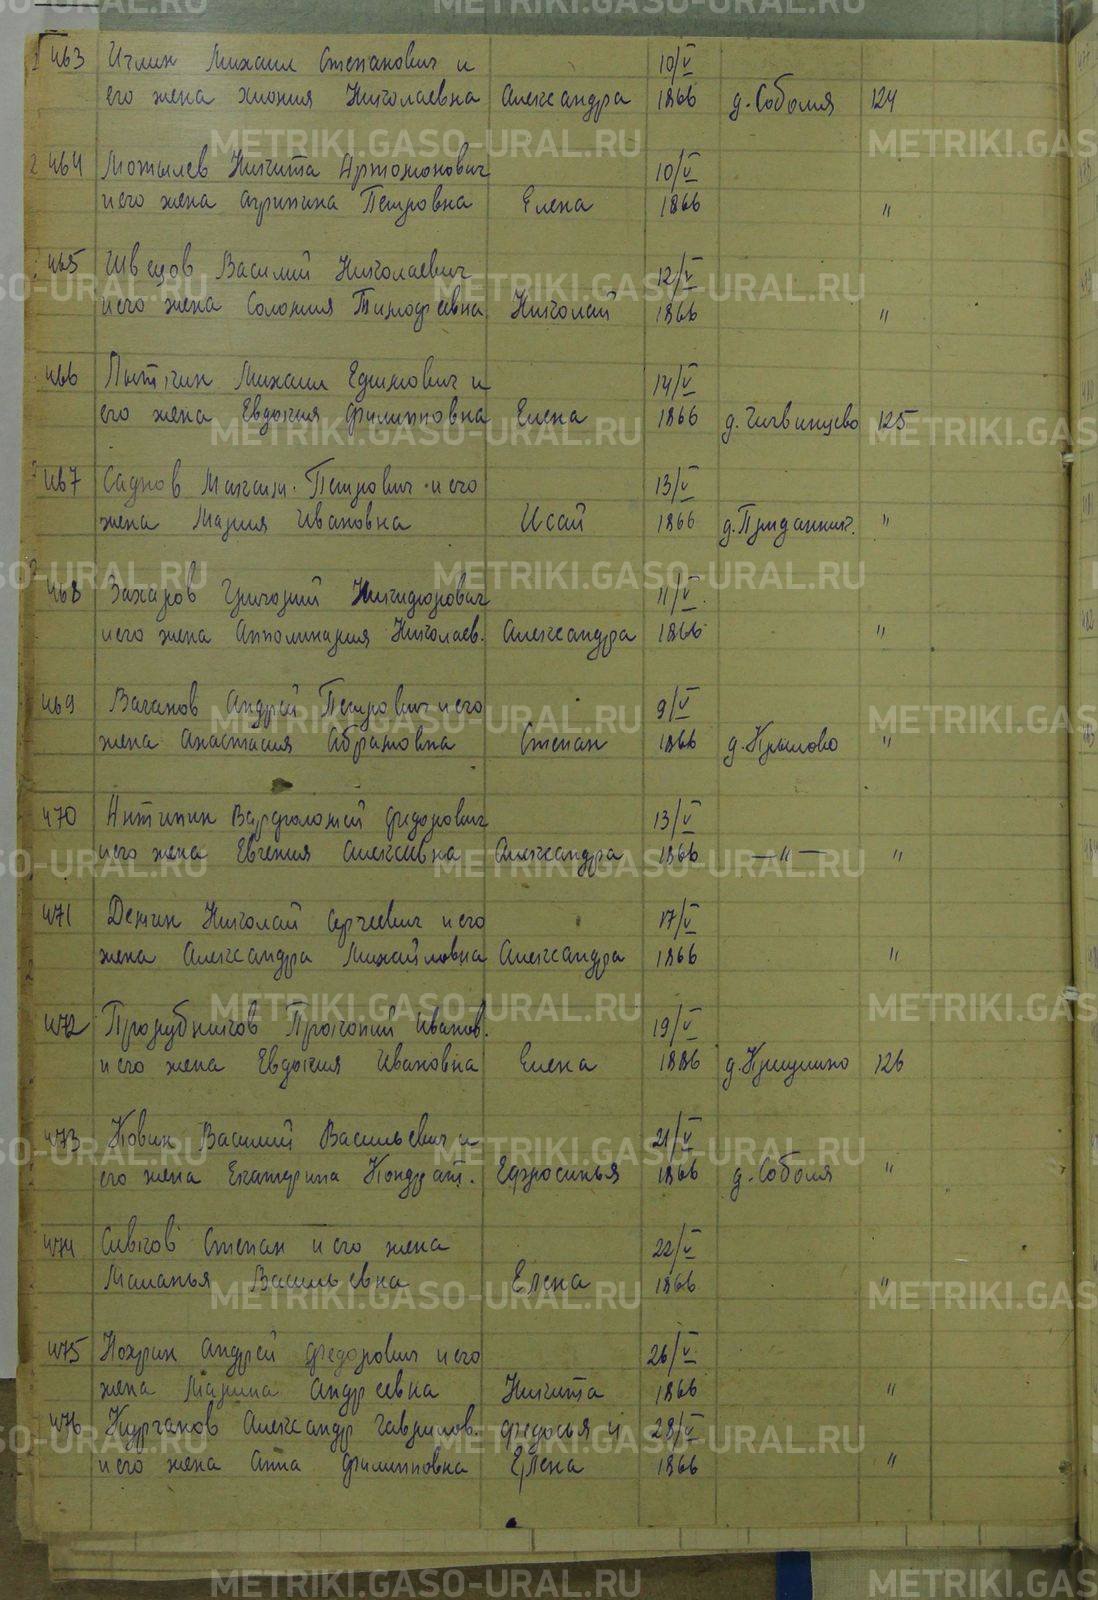 463 Иглин Михаил Степанович и 10/V
его жена Хиония Николаевна Александра 1866 д. Соболя 124
464 Можылев Никита Артомонович 10/V
и его жена Агрипина Петровна Елена 1866 "
465 Швецов Василий Николаевич 12/V
и его жена Соломия Тимофеевна Николай 1866 "
466 Пыткин Михаил Ефимович и 14/V
его жена Евдокия Филипповна Елена 1866 д. Чигвинцево 125
467 Садков Максим Петрович и его 13/V
жена Мария Ивановна Исай 1866 д. Приданник. "
468 Захаров Григорий Никидорович 11/V
и его жена Апполинария Николаев. Александра 1866 "
469 Ваганов Андрей Петрович и его 9/V
жена Анастасия Абрамовна Степан 1866 д. Крылово "
470 Антипин Варфоломей Федорович 13/V
и его жена Евгения Алексеевна Александра 1866 —"— "
471 Демин Николай Сергеевич и его 17/V
жена Александра Михайловна Александра 1866 "
472 Прозубщиков Прокопий Иванов. 19/V
и его жена Евдокия Ивановна Елена 1886 126
473 Ковин Василий Васильевич и 21/V
его жена Екатерина Кондрат. Ефросинья 1866 д. Соболя "
474 Сивков Степан и его жена 22/V
Маланья Васильевна Елена 1866 "
475 Кохрин Андрей Федорович и его 26/V
жена Марина Андреевна Никита 1866 "
476 Курганов Александр Гаврилов. Федосья и 28/V
и его жена Анна Филипповна Елена 1866 "
METRIKI.GASO-URAL.RU